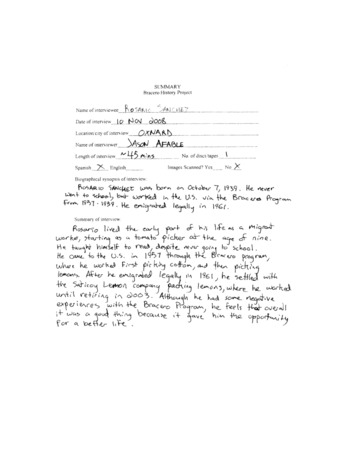 SUMMARY
Bracero History Project
Name of interviewee ROSARIO SANCHEZ
Date of interview 10 NOV 2008
Location/city of interview OXNARD
Name of interviewer JASON AFABLE
Length of interview ~45 mins No. of discs/tapes 1
Spanish X English Images Scanned? Yes No X
Biographical synopsis of interview:
Rosario Sanchez was born on October 7, 1939. He never
went to school, but worked in the U.S. via the Bracero Program
from 1957-1959. He emigrated legally in 1961.
Summary of interview:
Rosario lived the early part of his life as a migrant
worker, starting as a tomato picker at the age of nine.
He taught himself to read, despite never going to school.
He came to the U.S. in 1957 through the Bracero program,
where he worked first picking cotton, and then picking
lemons. After he emigrated legally in 1961, he settled with
the Saticoy Lemon company packing lemons, where he worked
until retiring in 2003. Although he had some negative
experiences with the Bracero Program, he feels that overall
it was a good thing because it gave him the opportunity
for a better life.